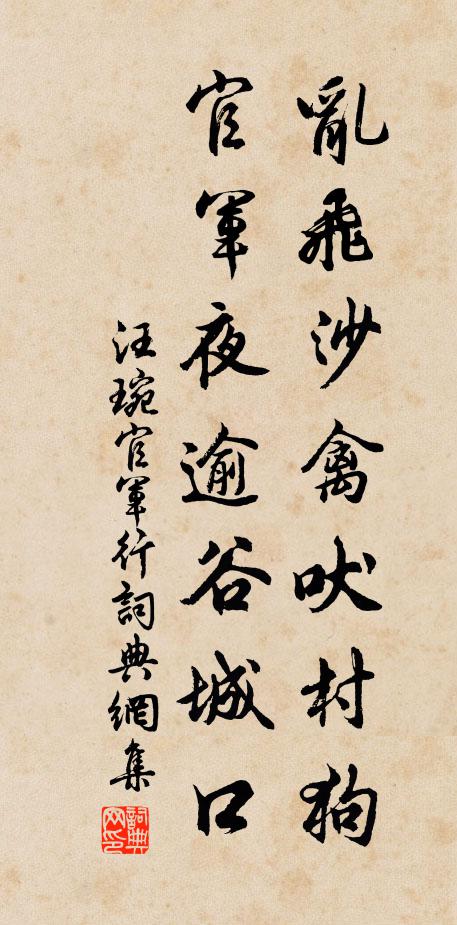 亂飛沙禽吠村狗
官軍夜逾谷城口
汪琬官軍行詞典網集
詞典網印